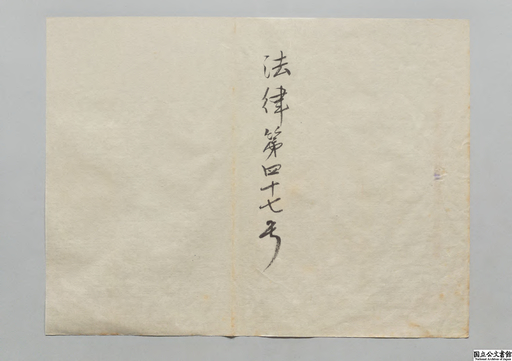 法律第四十七号
国立公文書館
National Archives of Japan